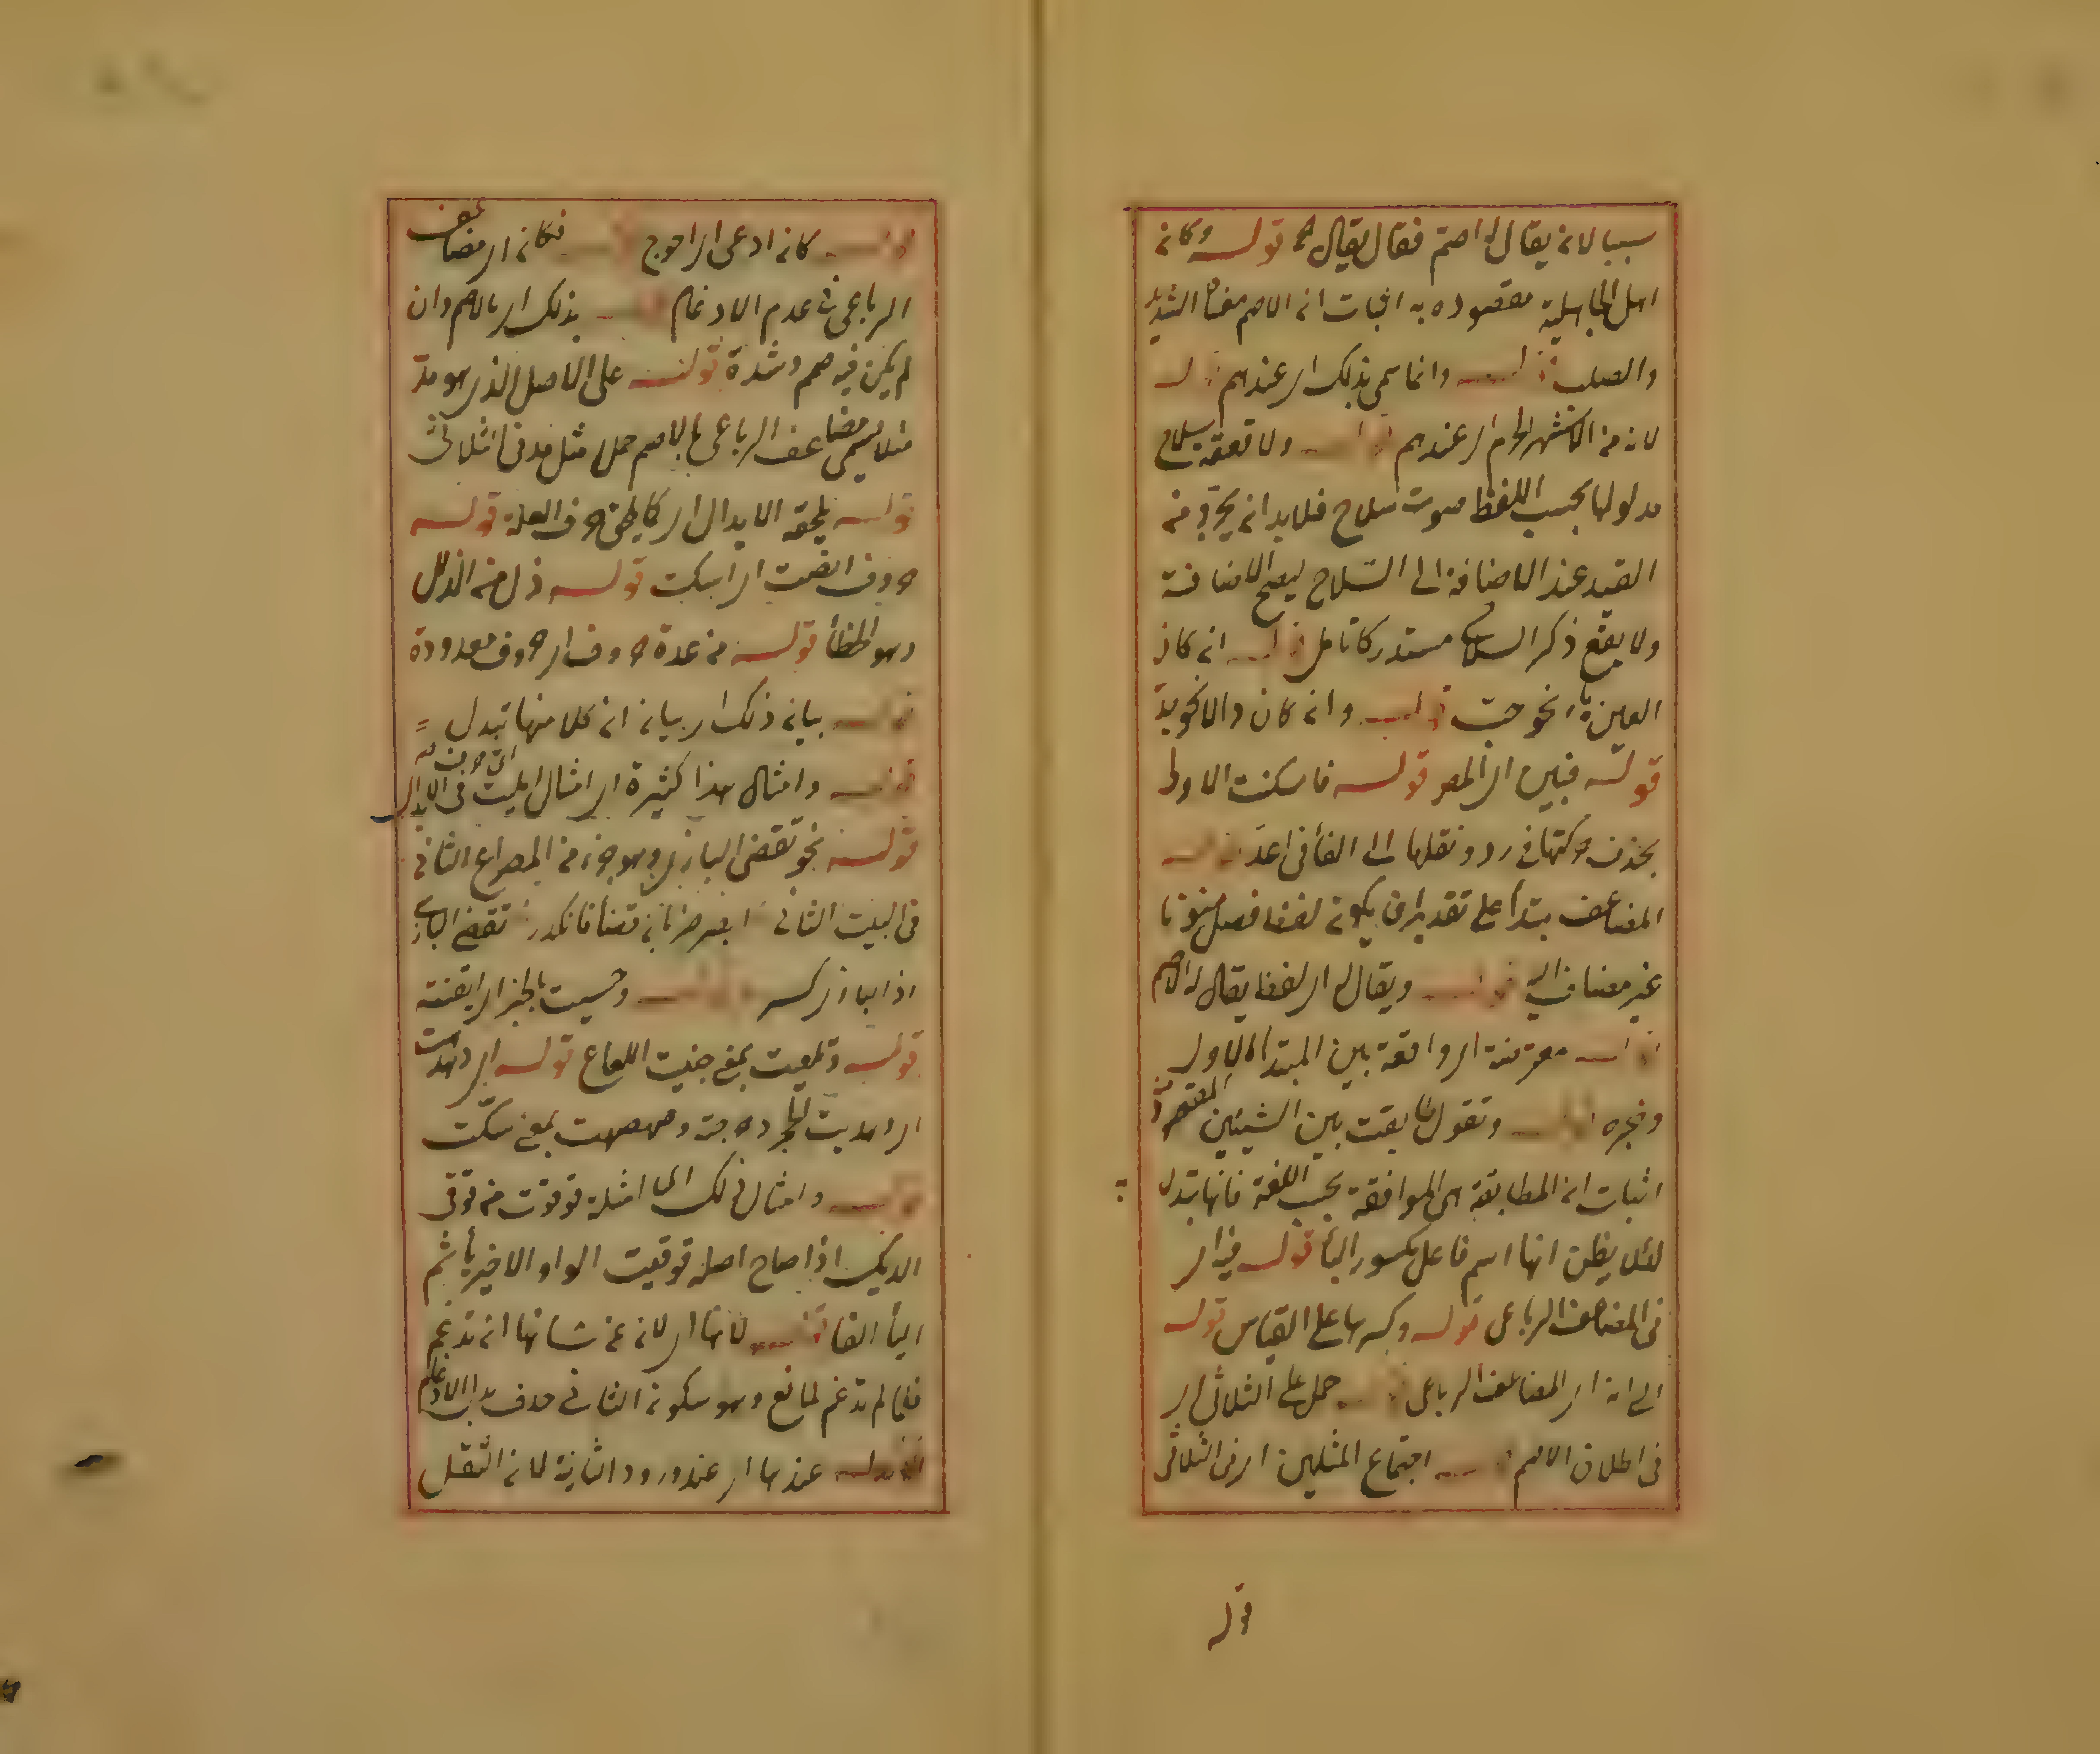 سببا لانه يقال له اصم فقال يقال له قوله وكانه
اهل الجاهلية مقصوده به اثبات انه الاصم معناه الشديد
والصلب قوله وانما سمى بذلك اى عندهم قوله
لانه من الاشهر الحرم اى عندهم قوله ولا قعقة سلاح
مدلولها بحسب اللفظ صوت سلاح فلا بد انه يجرد منه
القيد عند الاضافة الى السلاح ليصح الاضافة
ولا يقع ذكر السلاح مستدركا تامل قوله انه كان
العين ياء نحو حيت قوله وانه كان دالا نحو يد
قوله فيبين اى المص قوله فاسكنت الاولى
بحذف حركتها فى رد ونقلها الى الفأ فى اعد قوله
المضاعف مبتدأ على تقديران يكونه لفظ فصل منونا
غير مضاف اليه قوله ويقال له اى لفظ يقال له الاصم
قوله معترضة اى واقعة بين المبتدا الاول
وخبره قوله وتقول طابقت بين الشيئين المقصود
اثبات انه المطابقة هى الموافقة بحسب اللغة فانها تدل
لئلا يظن انها اسم فاعل بكسور البأ قوله فيه اى
فى المضاعف الرباعى قوله وكسرها على القياس قوله
الى انه اى المضاعف الرباعى قوله حمل على الثلاثى اى
فى اطلاق الاصم قوله اجتماع المثلين اى فى الثلاثى
قوله
قوله كانه ادعى اى احوج قوله فكانه اى مضاعف
الرباعى فى عدم الادغام قوله بذلك اى بالاصم وان
لم يكن فيه صمم وشدة قوله على الاصل الذى هو مد
مثلا يسمى مضاعف الرباعى بالاصم حملا مثل مد فى الثلاثى
قوله يلحقه الابدال اى كما يلحق حروف العلة قوله
حروف انصت اى اسكت قوله ذل من الذلل
وهو الخطأ قوله من عدة حروف اى حروف معدودة
قوله بيانه ذلك اى بيانه انه كلا منها تبدل
قوله وامثال هذا كثيرة اى امثال امليت فى الابدال
قوله نحو تقضى البازى وهو جزء من المصراع الثانى
فى البيت الثانى ابصر خربانه فضأ فانكدر تقضى البازى
اذا البازى كسر قوله وحسيت بالخبر اى ايقنته
قوله وتلعيت بمعنى جنيت اللعاع قوله اى دهدهت
اى دهديت الحجر دحرجته وصهصهت بمعنى سكت
قوله وامثال ذلك اى امثلة قوقوت من قوقى
الديك اذا صاح اصله قوقيت الواو الاخير يأ ثم
اليأ الفا قوله لانها اى لانه من شانها انه تدغم
فلما لم تدغم لمانع وهو سكونه الثانى حذف بدل الادغام
قوله عندها اى عند ورود الثانية لانه الثقل